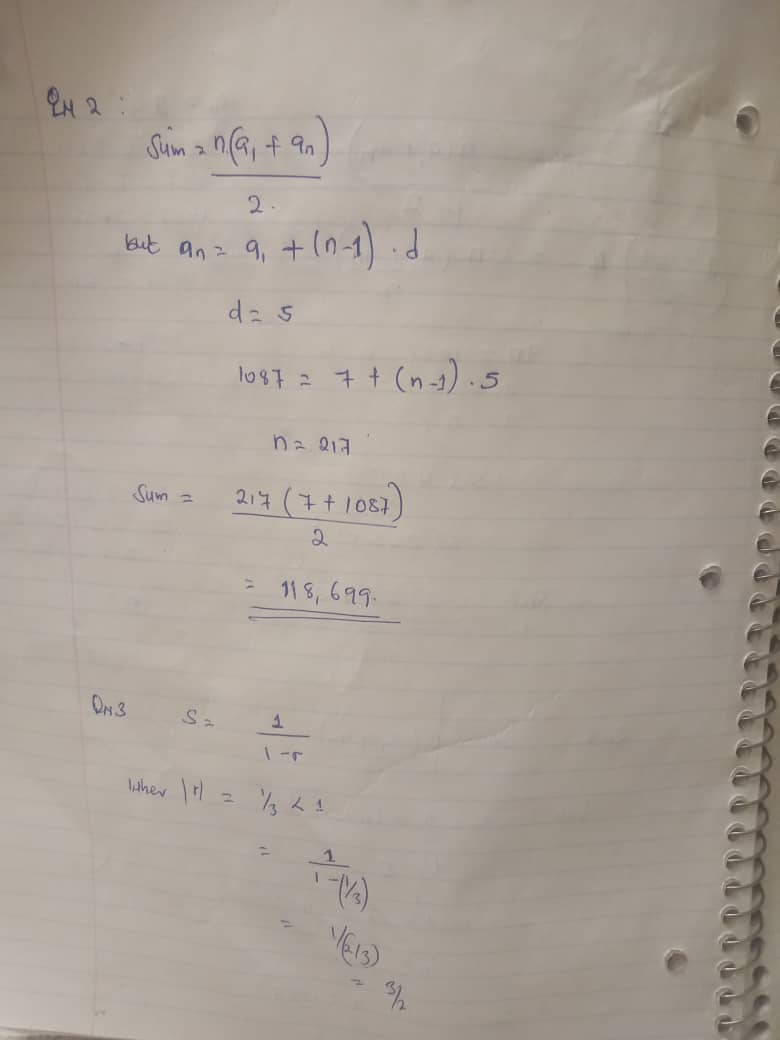 QN 2 :
Sum = n(a₁ + aₙ)
2.
but aₙ = a₁ + (n-1) . d
d = 5
1087 = 7 + (n-1) . 5
n = 217
Sum = 217 (7 + 1087)
2
= 118,699.
QN3 S = 1
1 - r
When |r| = 1/3 < 1
= 1
1 - (1/3)
= 1/(2/3)
= 3/2